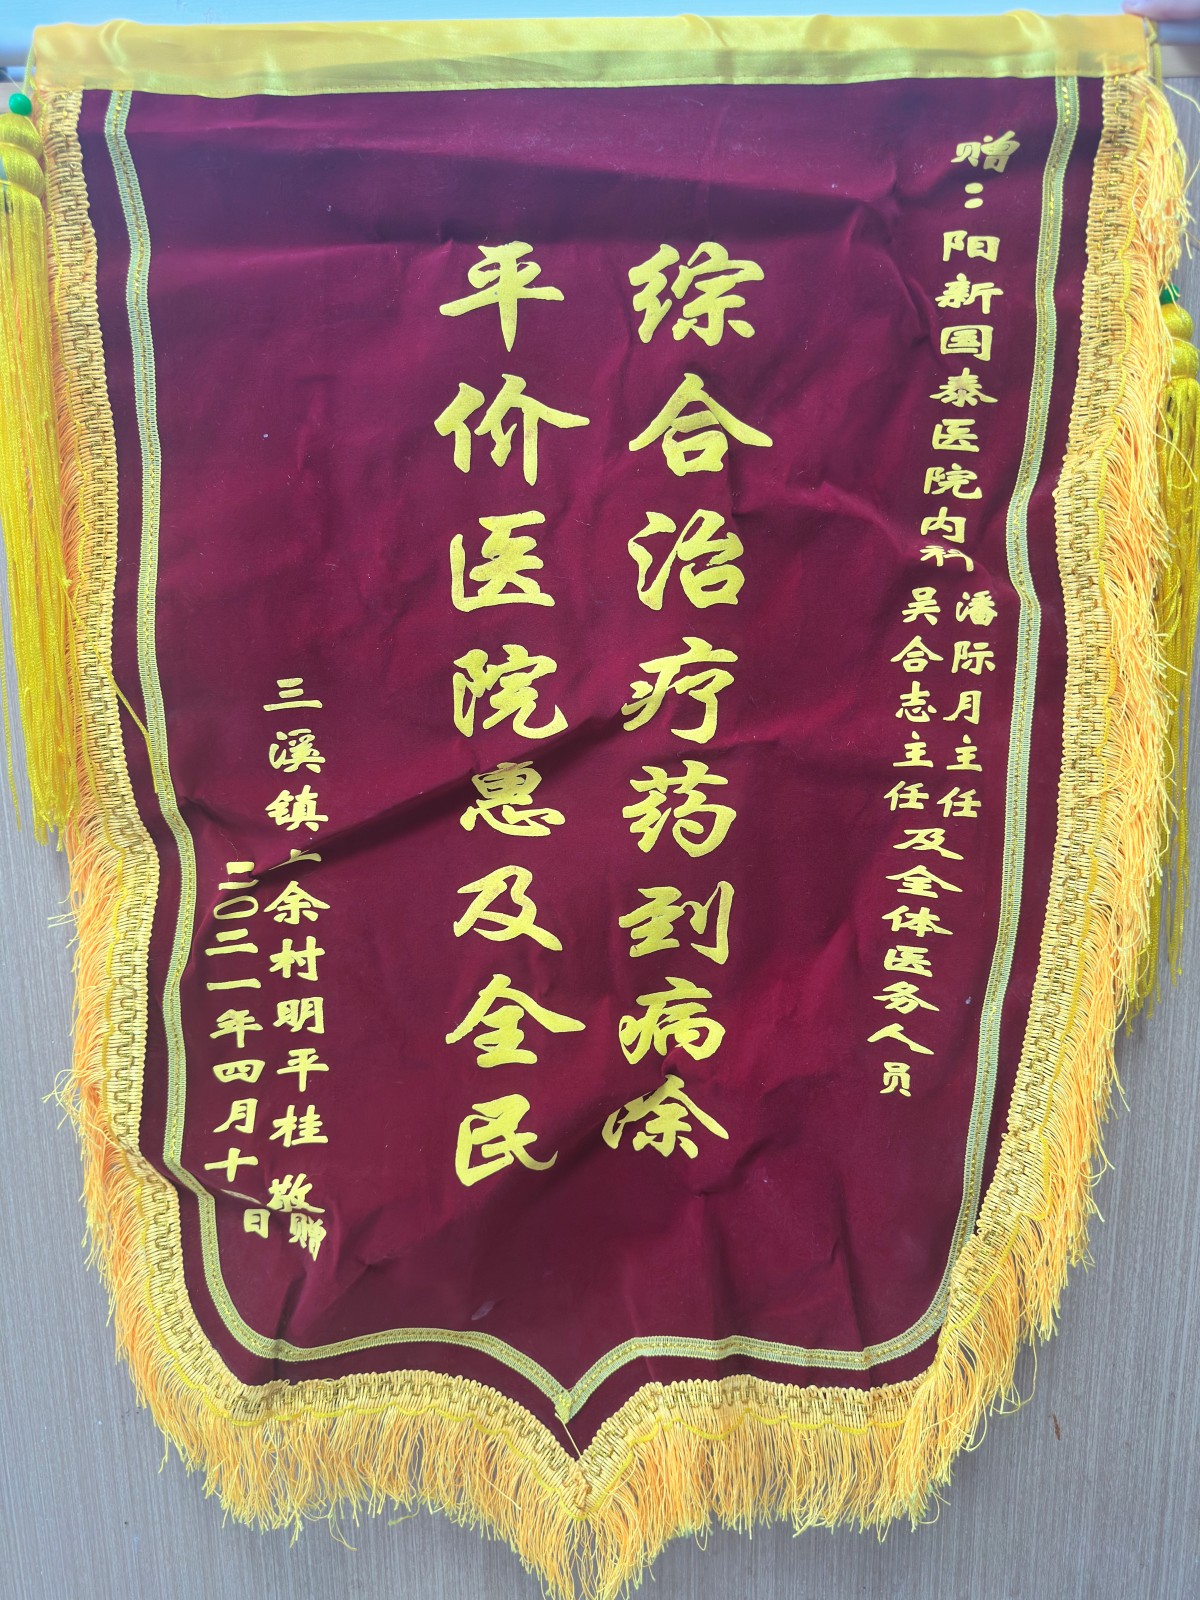 赠：阳新国泰医院内科
潘际月主任
吴合志主任及全体医务人员
综合治疗药到病除
平价医院惠及全民
三溪镇上余村明平桂敬赠
二〇二一年四月十日